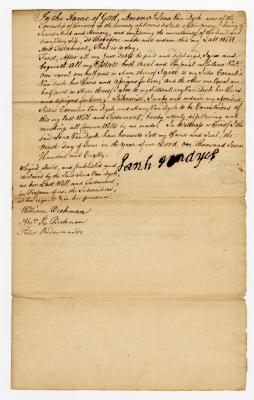 In the Name of God, Amen. I Sarah Van Dyck, one of the
Township of in the County of and State of New Jersey, being of
Sound Mind and Memory, and considering the uncertainty of this frail and
transitory life, do therefore make and ordain this my Last Will
and Testament, That is to say,
First, After all my just Debts be paid and discharged, I give and
bequeath all my Estate both Real and Personal as follows Viz.
One equal one half part or share thereof I give to my Sister Cornelia
Van Dyck her Heirs and Assigns for Ever, And the other one Equal one
half part or share thereof I give to my Sister Mary Van Dyck her Heirs
and Assigns for Ever, Likewise I make and ordain my aforesaid
Sisters Cornelia Van Dyck and Mary Van Dyck to be Executrixes of
this my last Will and Testament, hereby utterly disallowing and
revoking all former Wills by me made. In Witness whereof I the
said Sarah Van Dyck have hereunto Set my Hand and Seal, the
Ninth day of June in the Year of our Lord one thousand Seven
Hundred and Eighty.
Signed Sealed, and Published and
declared by the said Sarah Van Dyck
as her Last Will and Testament
in Presence of us, the Subscribers,
at her request & in her presence
Sarah Van Dyck
William Beekman
Beekman
Peter